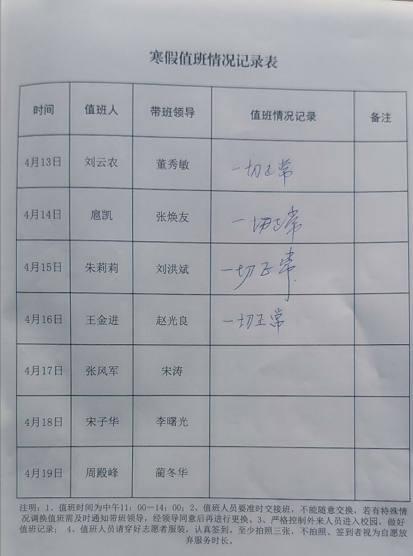 寒假值班情况记录表
时间 值班人 带班领导 值班情况记录 备注
4月13日 刘云农 董秀敏 一切正常
4月14日 扈凯 张焕友 一切正常
4月15日 朱莉莉 刘洪斌 一切正常
4月16日 王金进 赵光良 一切正常
4月17日 张风军 宋涛
4月18日 宋子华 李曙光
4月19日 周殿峰 蔺冬华
注明：1、值班时间为中午11：00—14：00；2、值班人员要准时交接班，不能随意交换，若有特殊情
况调换值班需及时通知带班领导，经领导同意后再进行更换。3、严格控制外来人员进入校园，做好
值班记录； 4、值班人员请穿好志愿者服装，认真签到。至少拍照三张，不拍照、签到者视为自愿放
弃服务时长。